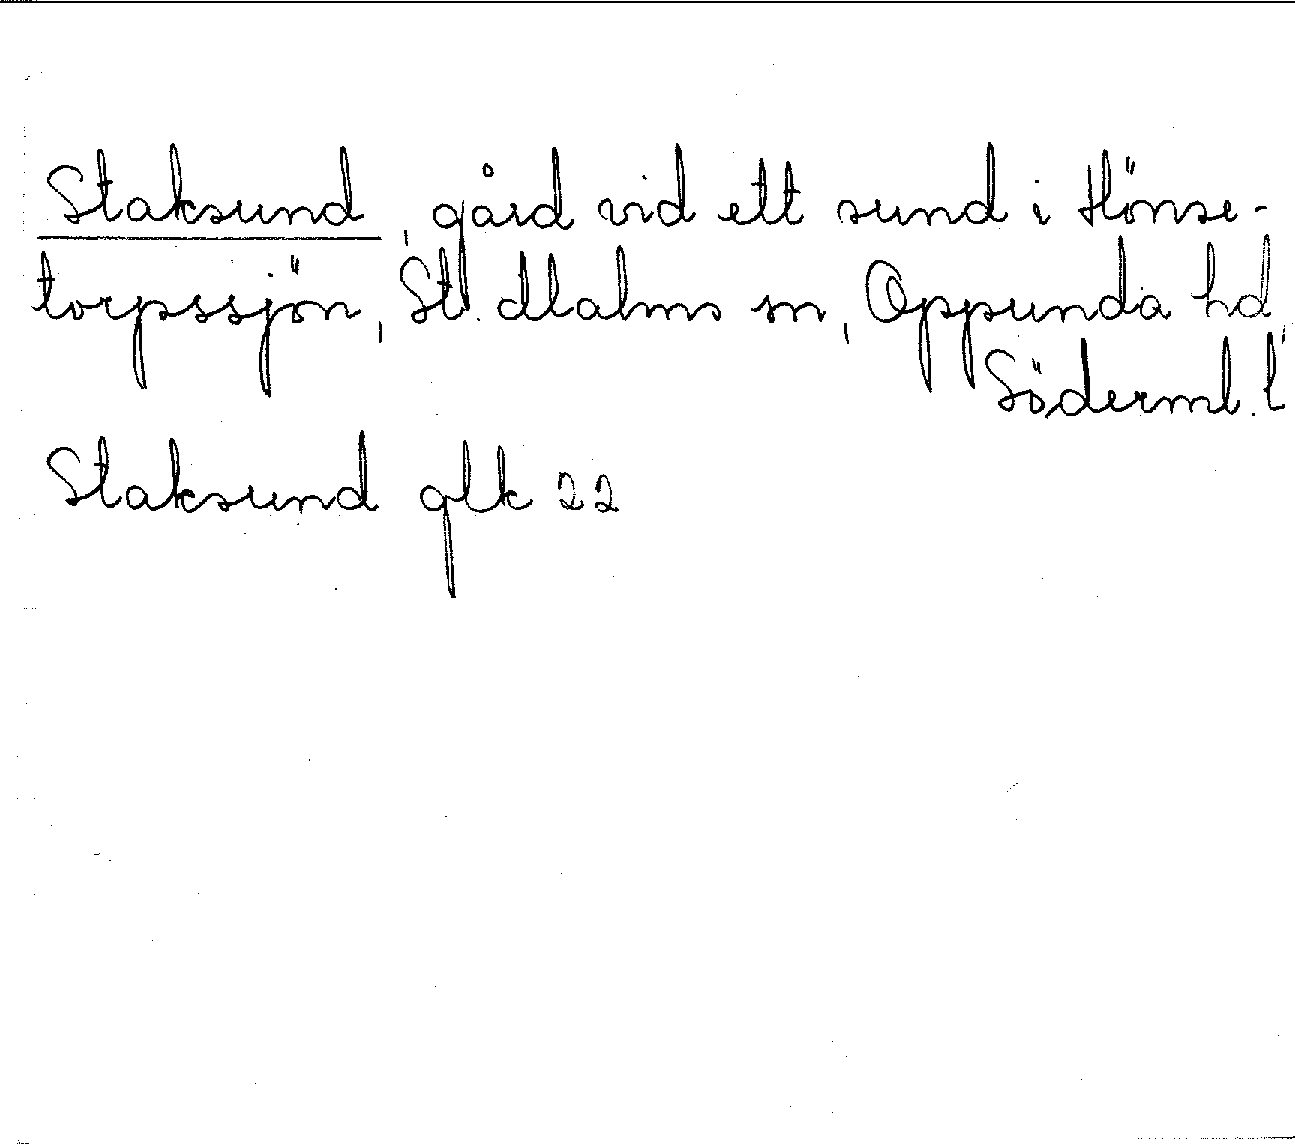 Staksund, gård vid ett sund i Hönse-
torpssjön, St. Malms sn, Oppunda hd,
Söderml. l
Staksund glk 22